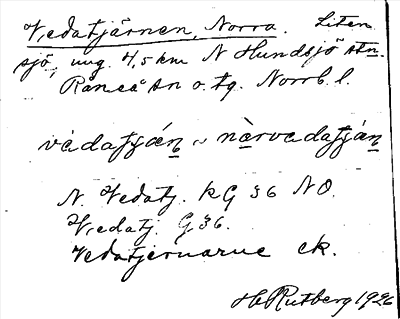 Vedatjärnen, Norra. Liten
sjö, ung. 4,5 km N Hundsjö stn.
Råneå sn o. tg. Norrb. l.
vàdatjá̱n ~ nàrvadatjá̱n
N. Vedatj. kG 36 NO.
Vedatj. G.36.
Vedatjernarne ek.
H. Rutberg 1926